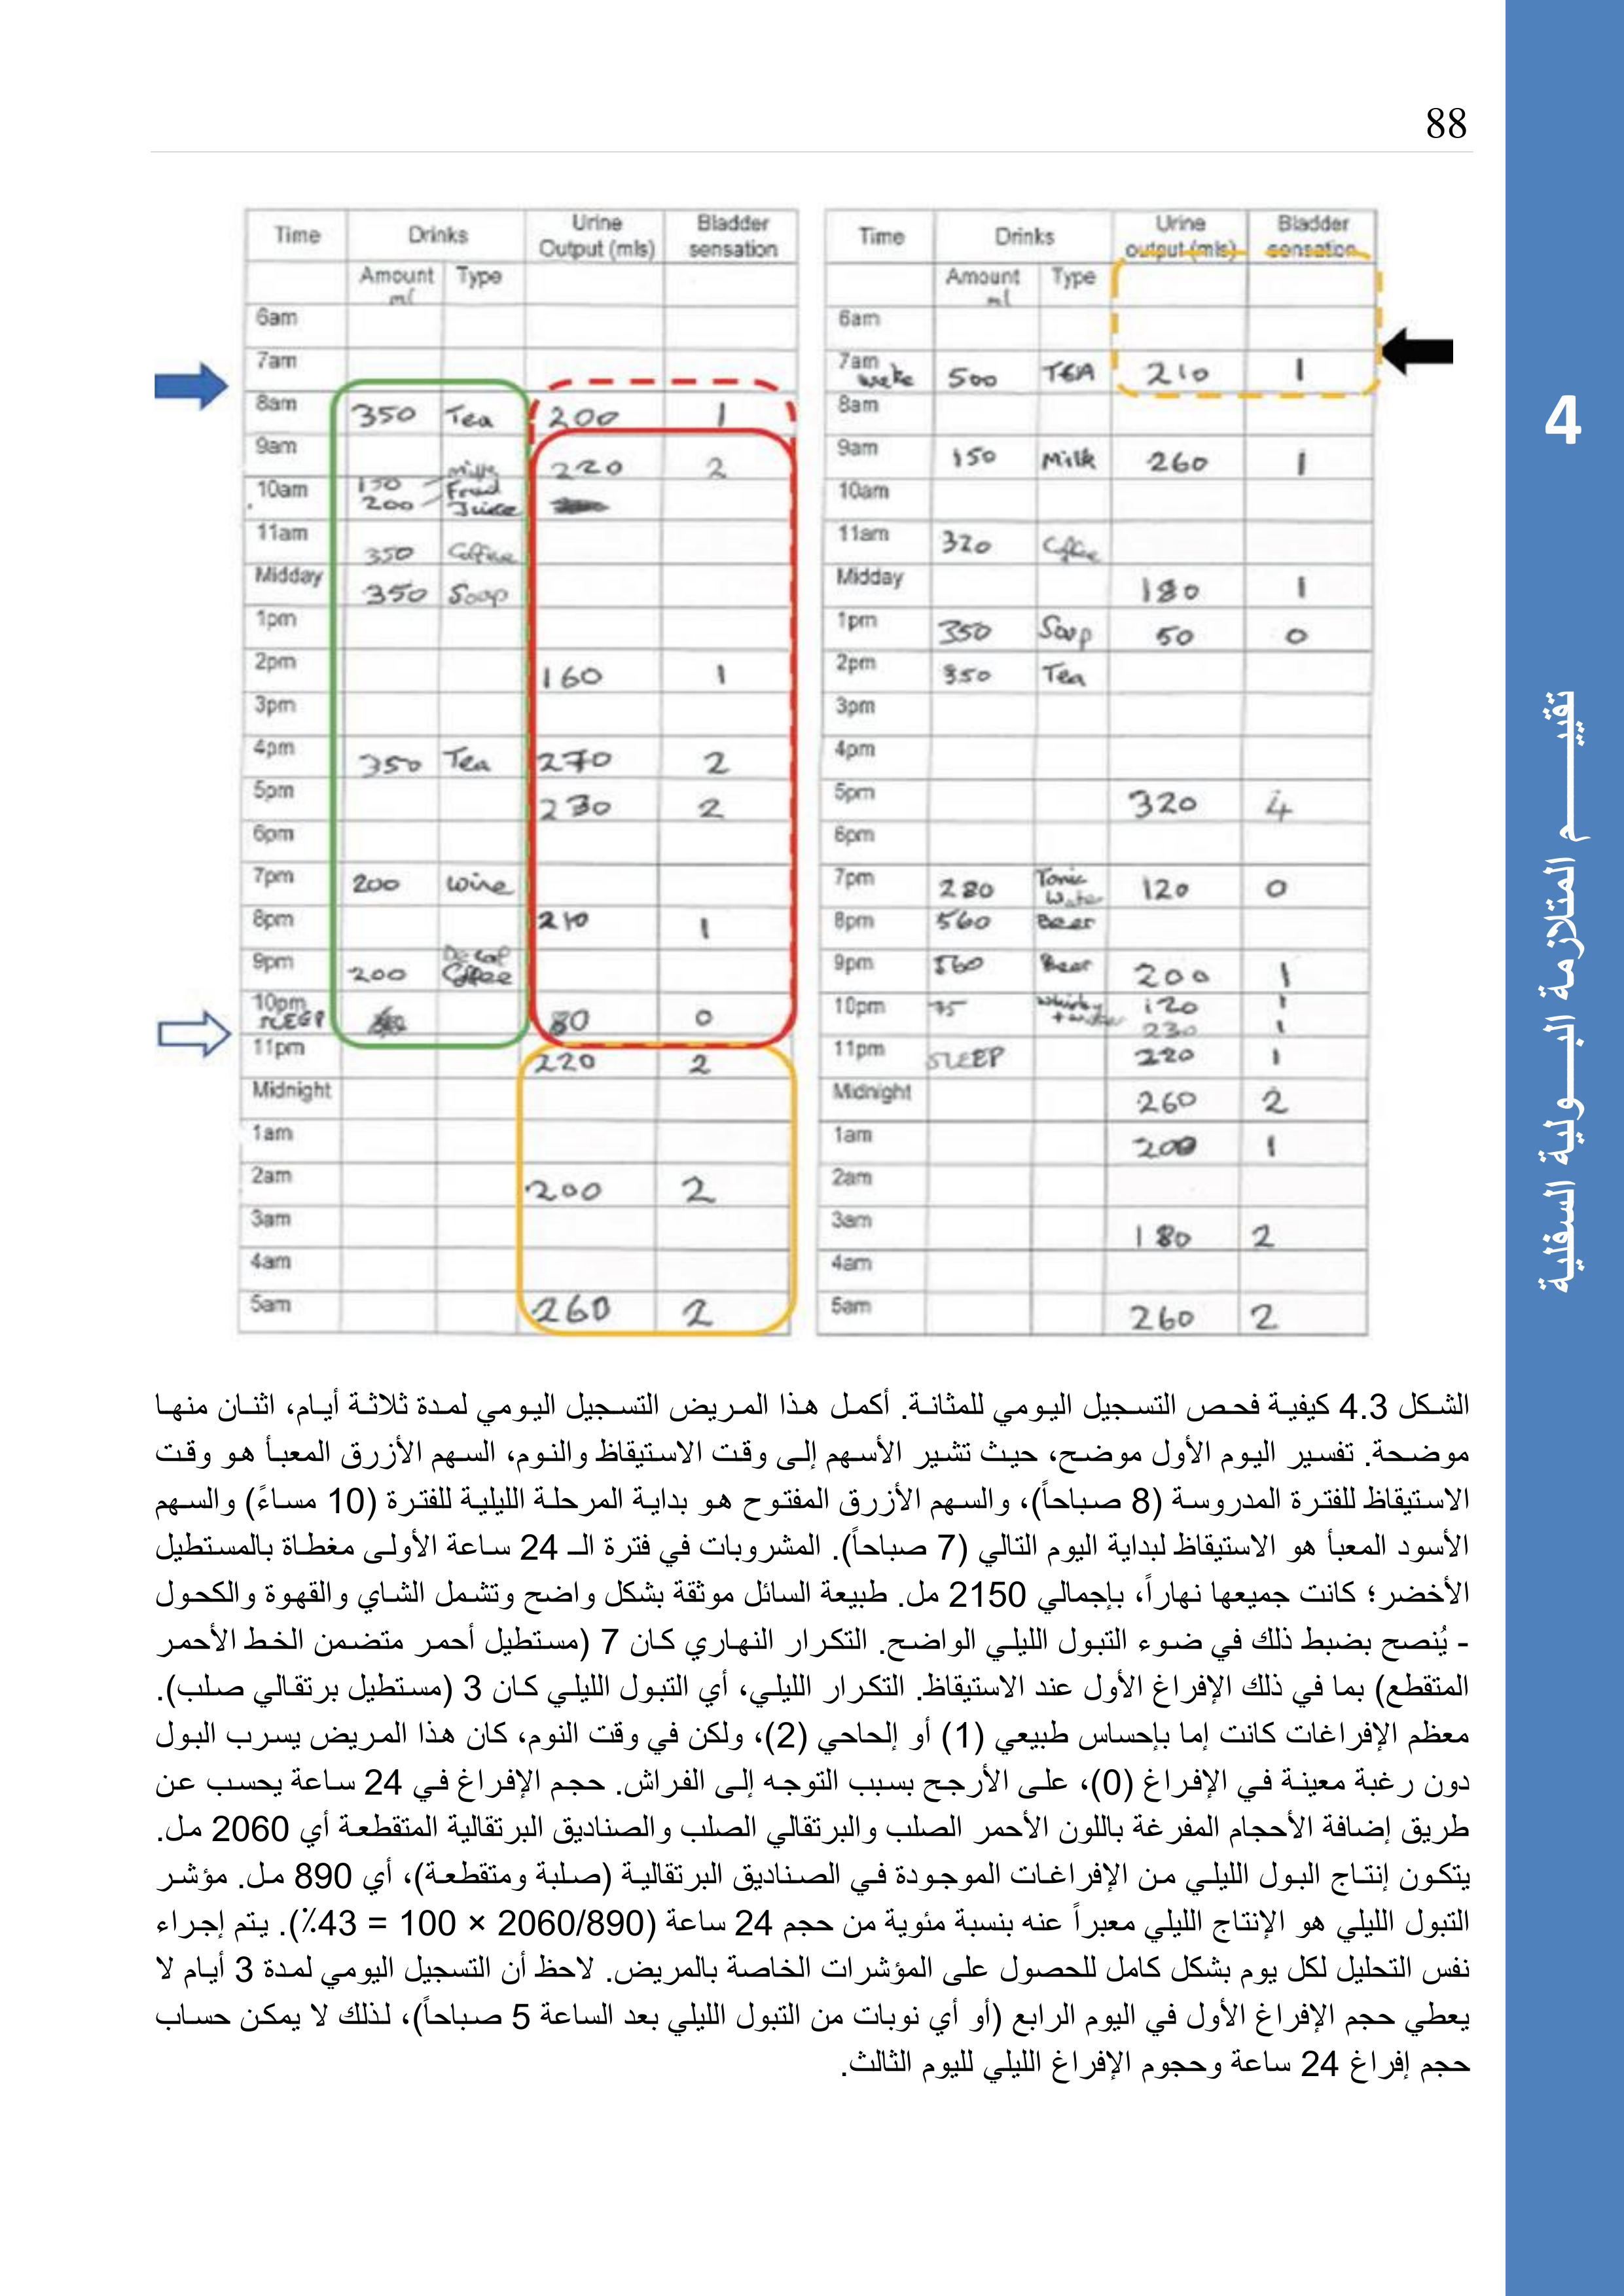 88
Time Drinks Urine Output (mls) Bladder sensation
Amount ml Type
6am
7am
8am 350 Tea 200 1
9am 220 2
10am 150 Milk
200 Fruit Juice
11am 350 Coffee
Midday 350 Soop
1pm
2pm 160 1
3pm
4pm 350 Tea 270 2
5pm 230 2
6pm
7pm 200 Wine
8pm 210 1
9pm 200 Decaf Coffee
10pm SLEEP 80 0
11pm 220 2
Midnight
1am
2am 200 2
3am
4am
5am 260 2
Time Drinks Urine output (mls) Bladder sensation
Amount ml Type
6am
7am woke 500 TEA 210 1
8am
9am 150 Milk 260 1
10am
11am 320 Coffee
Midday 180 1
1pm 350 Soup 50 0
2pm 350 Tea
3pm
4pm
5pm 320 4
6pm
7pm 280 Tonic Water 120 0
8pm 560 Beer
9pm 560 Beer 200 1
10pm 75 Whisky + water 120 1
230 1
11pm SLEEP 220 1
Midnight 260 2
1am 200 1
2am
3am 180 2
4am
5am 260 2
الشكل 4.3 كيفية فحص التسجيل اليومي للمثانة. أكمل هذا المريض التسجيل اليومي لمدة ثلاثة أيام، اثنان منها
موضحة. تفسير اليوم الأول موضح، حيث تشير الأسهم إلى وقت الاستيقاظ والنوم، السهم الأزرق المعبأ هو وقت
الاستيقاظ للفترة المدروسة (8 صباحاً)، والسهم الأزرق المفتوح هو بداية المرحلة الليلية للفترة (10 مساءً) والسهم
الأسود المعبأ هو الاستيقاظ لبداية اليوم التالي (7 صباحاً). المشروبات في فترة الـ 24 ساعة الأولى مغطاة بالمستطيل
الأخضر؛ كانت جميعها نهاراً، بإجمالي 2150 مل. طبيعة السائل موثقة بشكل واضح وتشمل الشاي والقهوة والكحول
- يُنصح بضبط ذلك في ضوء التبول الليلي الواضح. التكرار النهاري كان 7 (مستطيل أحمر متضمن الخط الأحمر
المتقطع) بما في ذلك الإفراغ الأول عند الاستيقاظ. التكرار الليلي، أي التبول الليلي كان 3 (مستطيل برتقالي صلب).
معظم الإفراغات كانت إما بإحساس طبيعي (1) أو إلحاحي (2)، ولكن في وقت النوم، كان هذا المريض يسرب البول
دون رغبة معينة في الإفراغ (0)، على الأرجح بسبب التوجه إلى الفراش. حجم الإفراغ في 24 ساعة يحسب عن
طريق إضافة الأحجام المفرغة باللون الأحمر الصلب والبرتقالي الصلب والصناديق البرتقالية المتقطعة أي 2060 مل.
يتكون إنتاج البول الليلي من الإفراغات الموجودة في الصناديق البرتقالية (صلبة ومتقطعة)، أي 890 مل. مؤشر
التبول الليلي هو الإنتاج الليلي معبراً عنه بنسبة مئوية من حجم 24 ساعة (2060/890 × 100 = 43٪). يتم إجراء
نفس التحليل لكل يوم بشكل كامل للحصول على المؤشرات الخاصة بالمريض. لاحظ أن التسجيل اليومي لمدة 3 أيام لا
يعطي حجم الإفراغ الأول في اليوم الرابع (أو أي نوبات من التبول الليلي بعد الساعة 5 صباحاً)، لذلك لا يمكن حساب
حجم إفراغ 24 ساعة وحجوم الإفراغ الليلي لليوم الثالث.
4
تقييم المتلازمة البولية السفلية